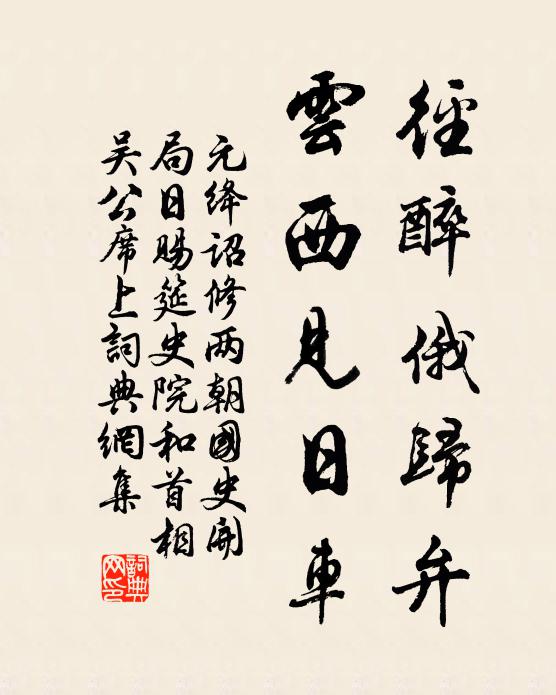 徑醉俄歸弁
雲西見日車
元絳詔修两朝國史開
局日賜筵史院和首相
吴公席上詞典網集
詞典網印